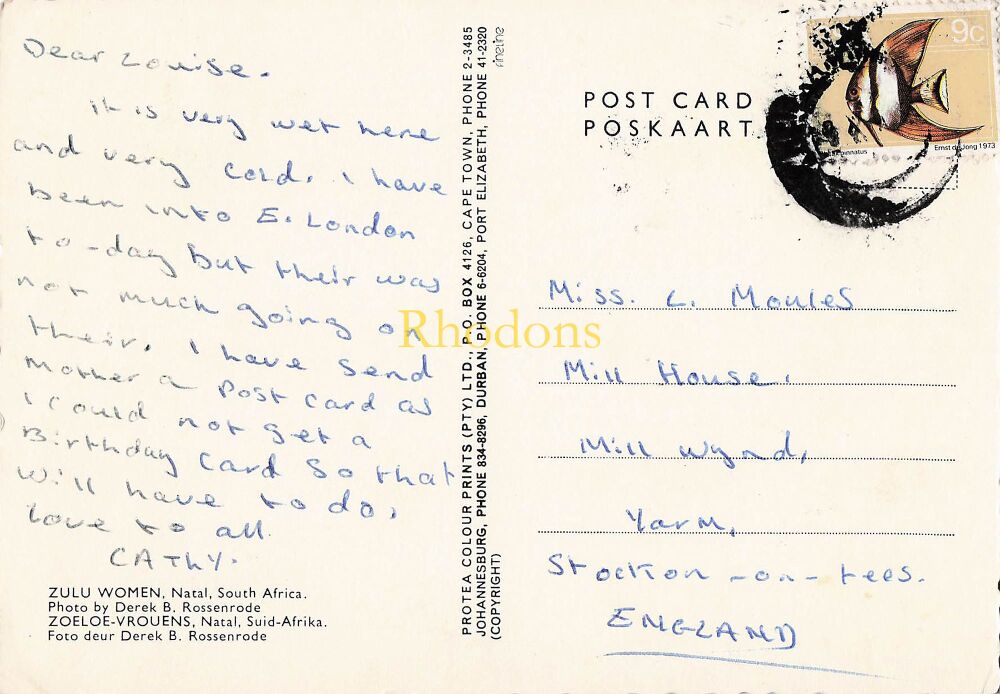 Dear Louise.
it is very wet here
and very cold. I have
been into E. London
to-day but their was
not much going on
their. I have send
Mother a Post card as
I could not get a
Birthday Card so that
will have to do,
love to all.
CATHY.
ZULU WOMEN, Natal, South Africa.
Photo by Derek B. Rossenrode
ZOELOE-VROUENS, Natal, Suid-Afrika.
Foto deur Derek B. Rossenrode
PROTEA COLOUR PRINTS (PTY) LTD., P.O. BOX 4126, CAPE TOWN, PHONE 2-3485
JOHANNESBURG, PHONE 834-8296, DURBAN, PHONE 6-6204, PORT ELIZABETH, PHONE 41-2320
(COPYRIGHT)
fineline
Rhodons
POST CARD
POSKAART
9c
pinnatus
Ernst de Jong 1973
Miss. L. Moules
Mill House.
Mill Wynd,
Yarm,
Stockton-on-tees.
ENGLAND